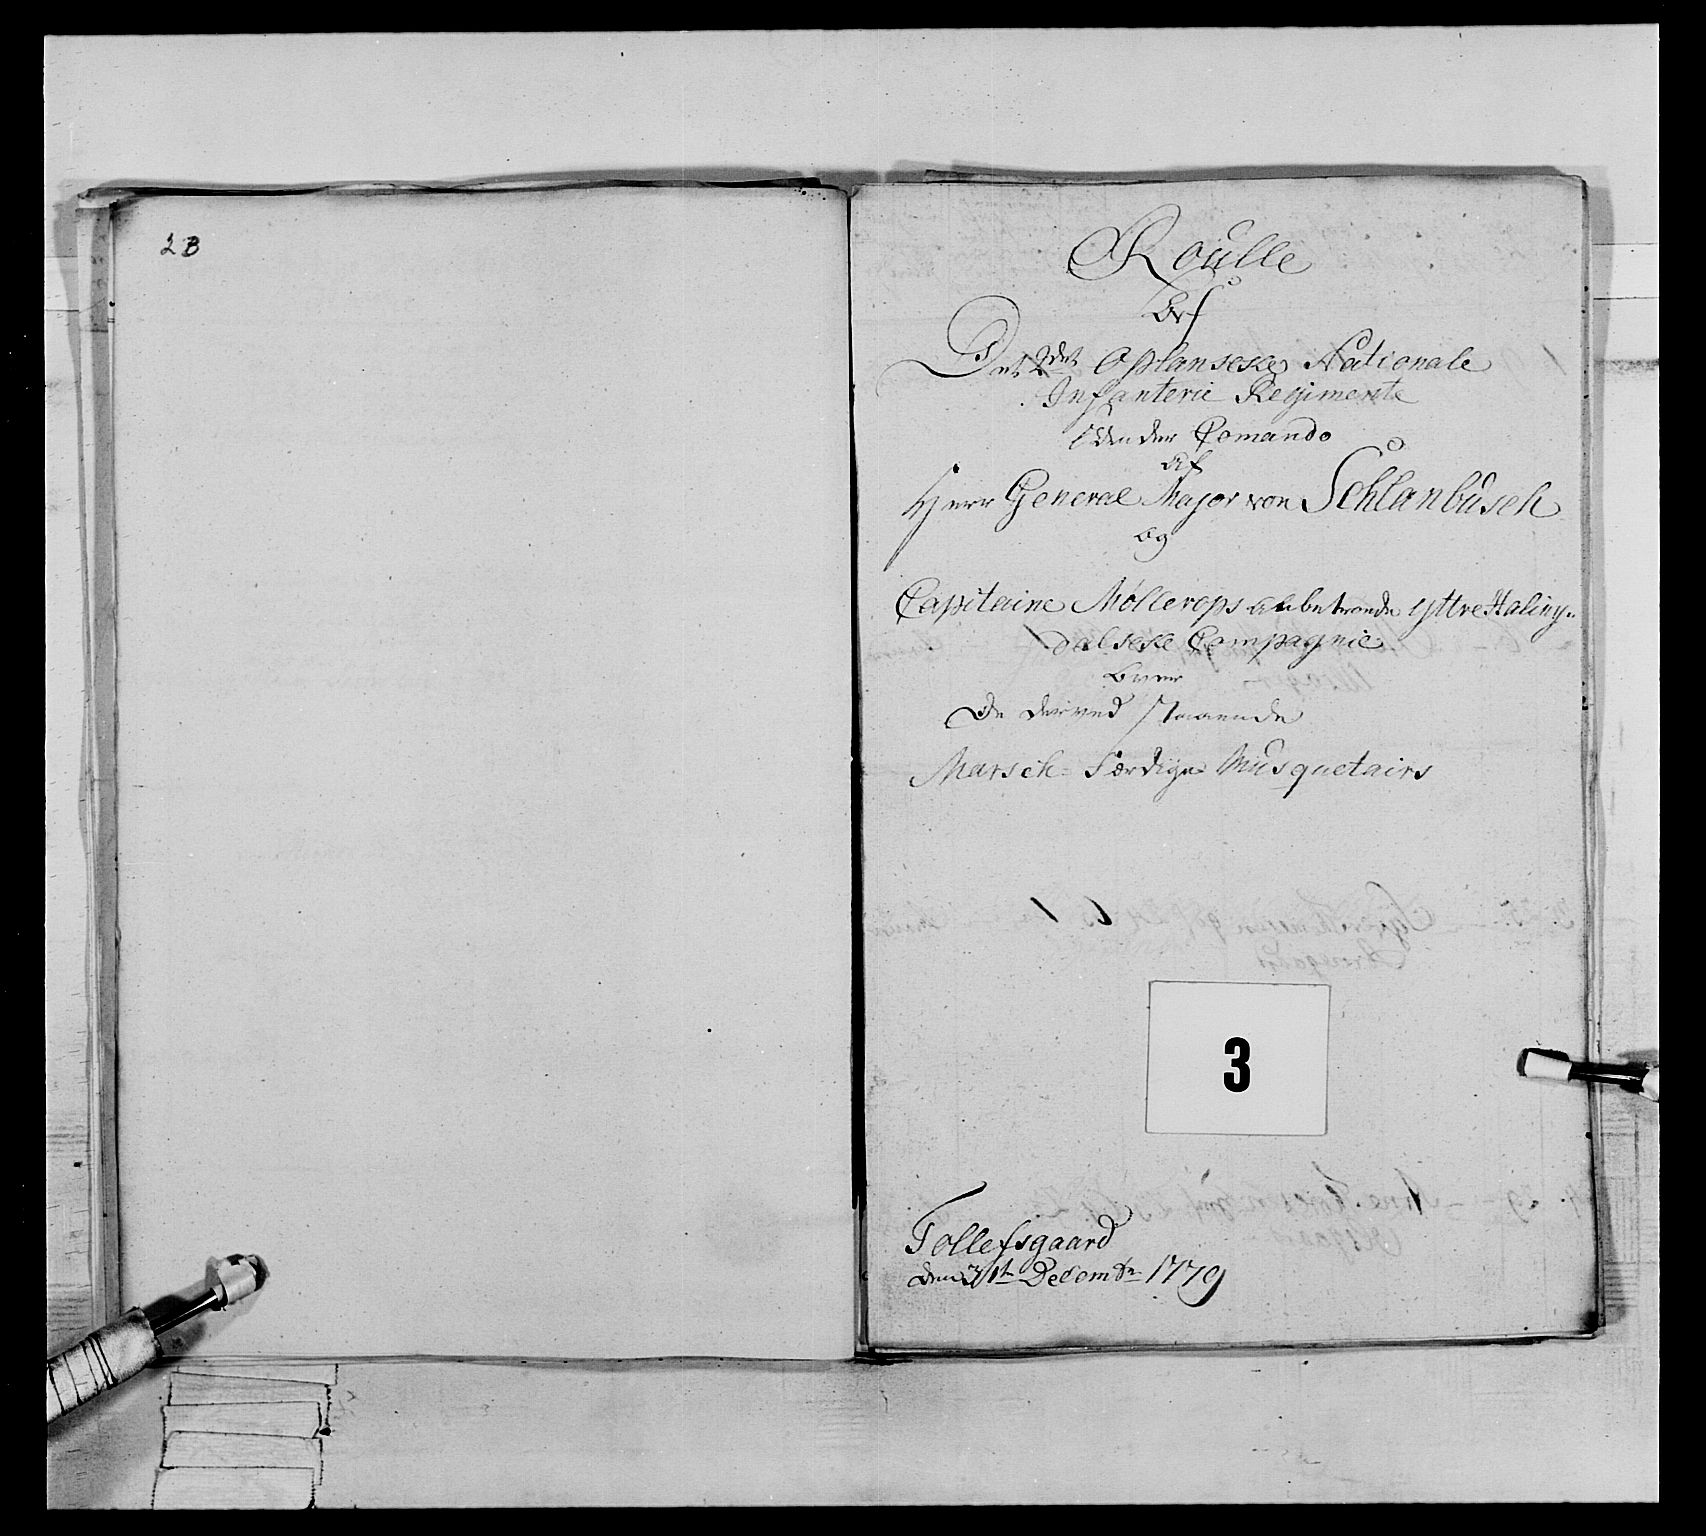 2B
Roulle
Det 2det Oplanske Nationale
Infanterie Regimente
Under Comando
af
Herr General Major von Schlanbusch
og
Capitaine Møllerops anbetroede Yttre Haling-
dalske Compagnie
over
De derved staaende
Marsch-Færdige Musquetairs
3
Tollefsgaard
den 31te Decembr 1779